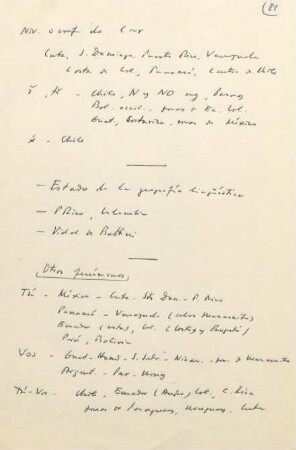 81
Cuba, S. Domingo, Puerto Rico, Venezuela
Costa de Col, Panamá, Centro de Chile
Chile, N y NO arg, Parag
Bol.
Guat, Costarrica, de México
- Chile
- Estado de la geografía lingüística
- P Rico, Colombia
- Vidal de Battini
Otros fenómenos
Tú - México - Cuba - Sto Dom - P. Rico
Panamá - Venezuela (salvo Maracaibo)
Ecuador (costa), Col. (Costa y Bogotá)
Perú, Bolivia
Vos - Guat - Hond - S. Salv - Nicar - de Maracaibo
Argent - Par - Urug
Tú-Vos - Chile, Ecuador (Andes) Col, C. Rica
zonas de Paraguay, Uruguay, Cuba